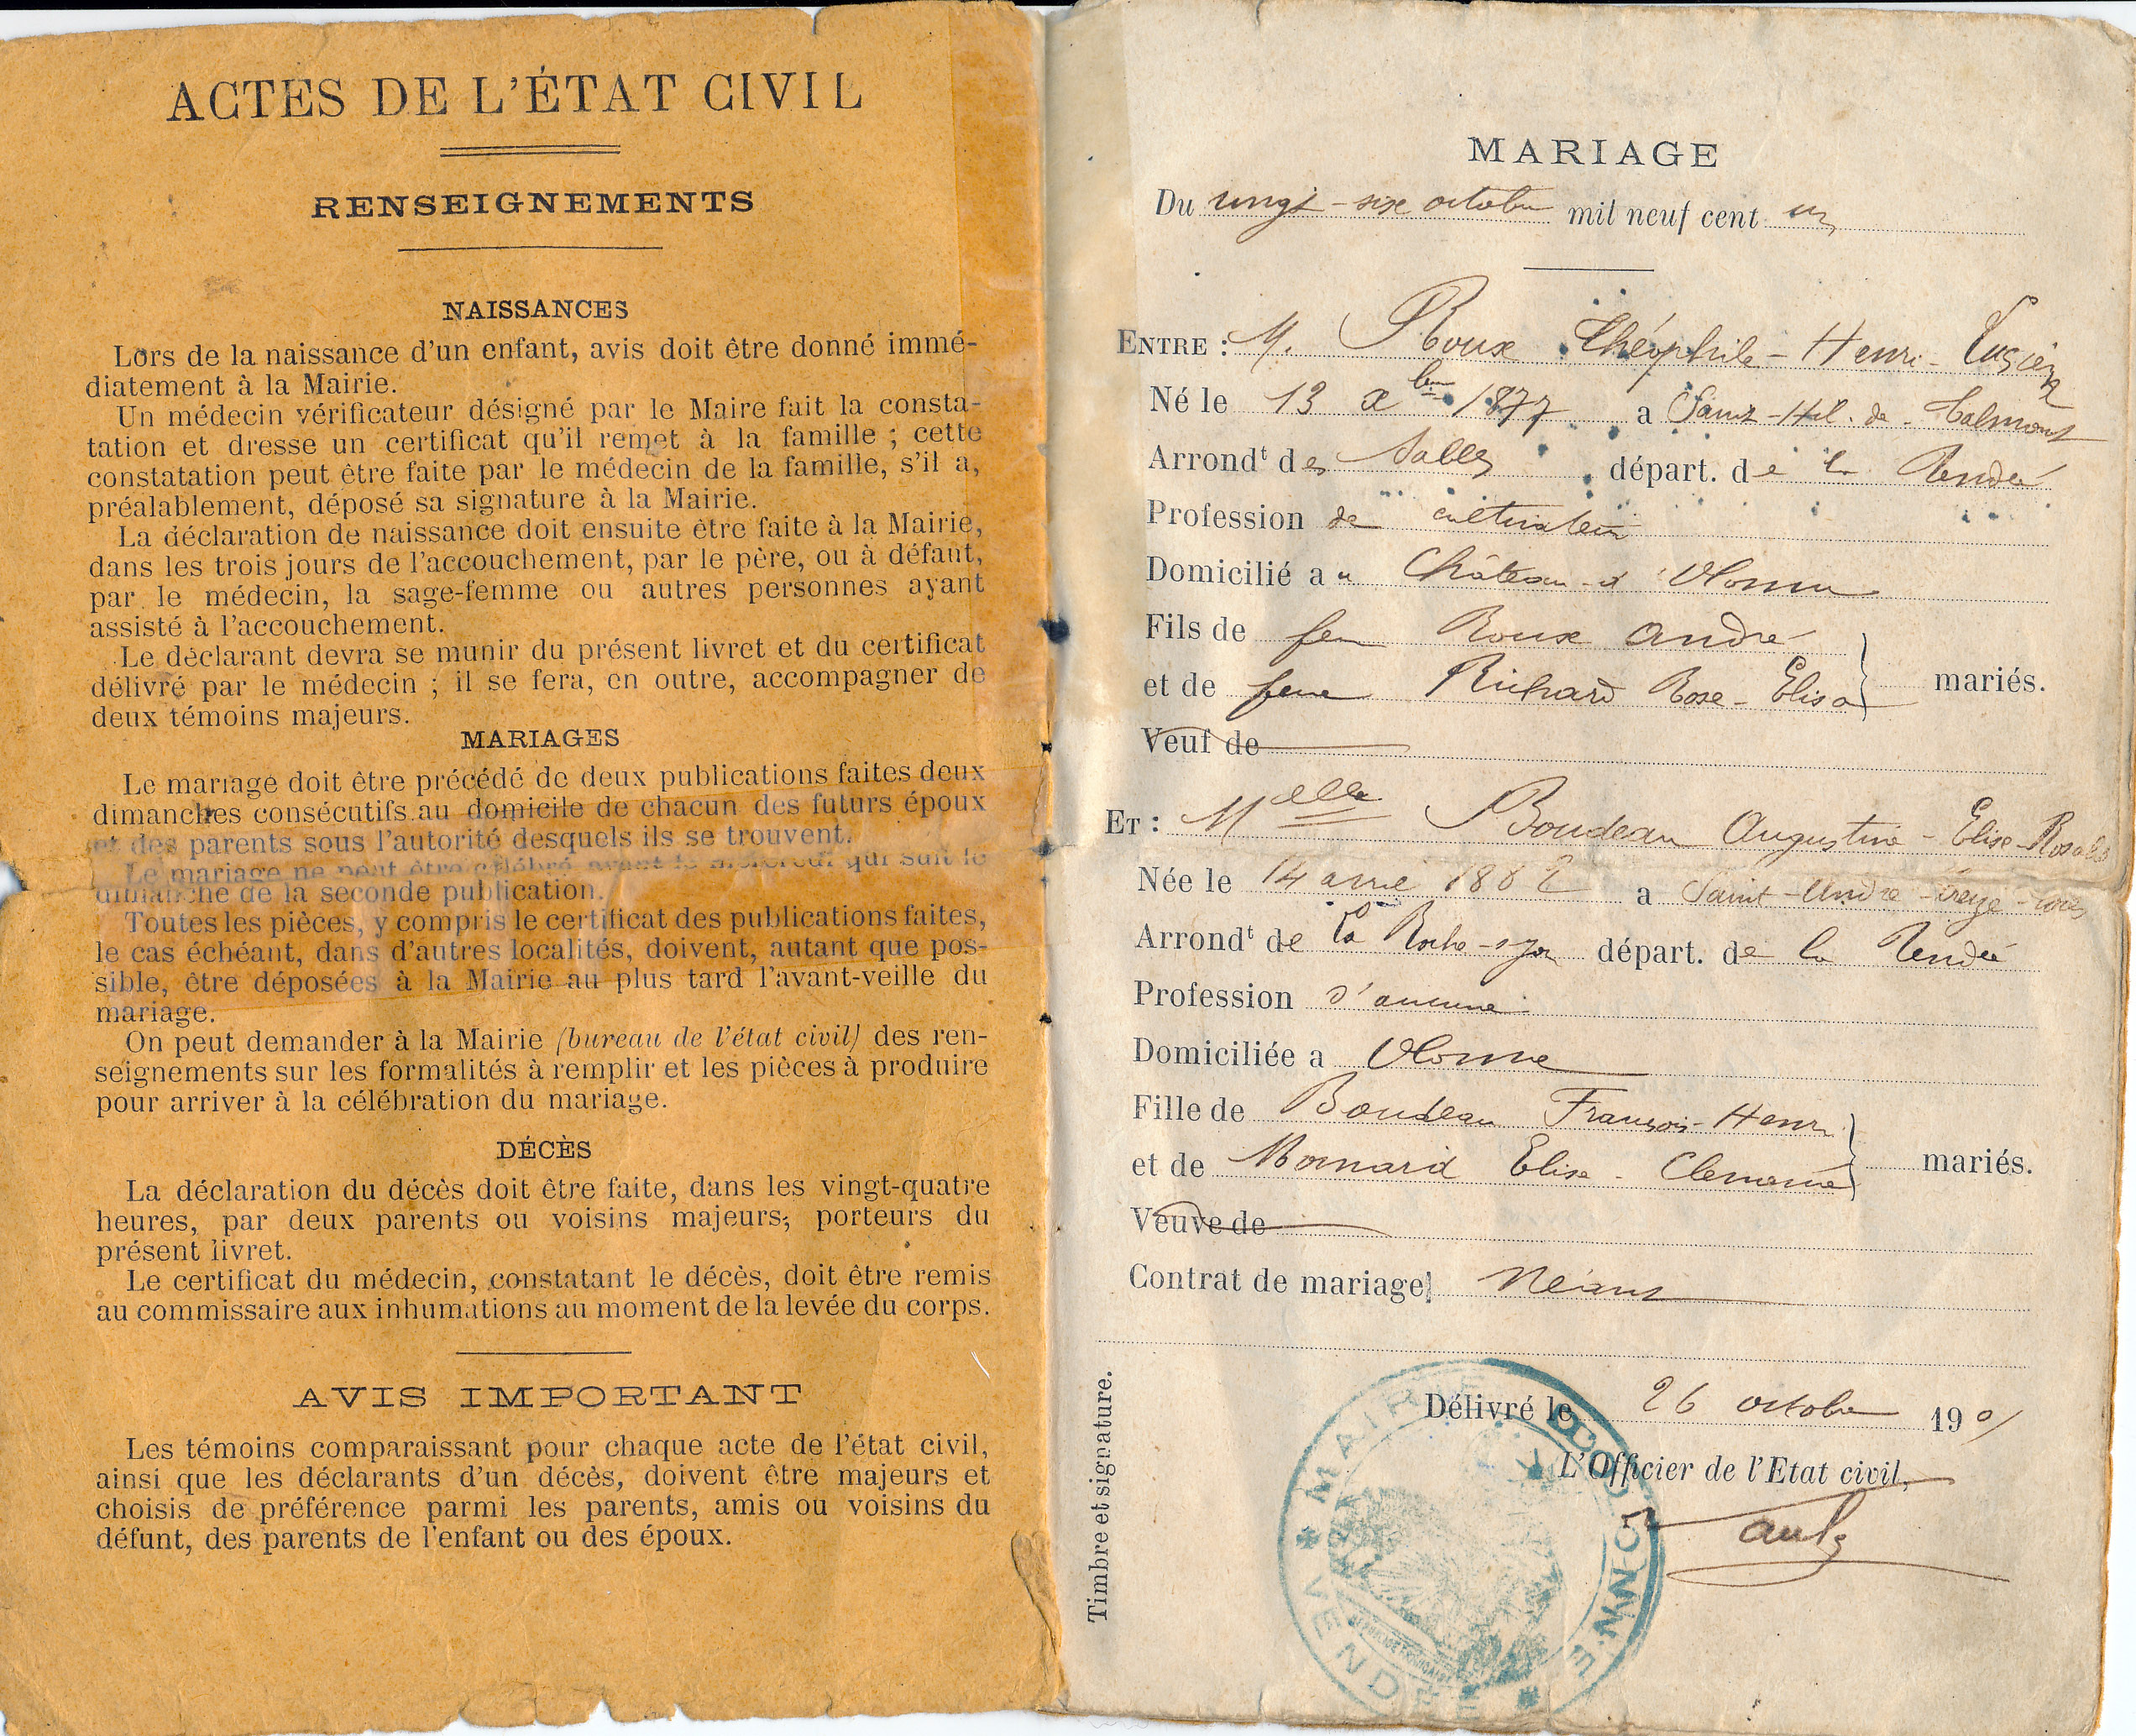 ACTES DE L'ÉTAT CIVIL
RENSEIGNEMENTS
NAISSANCES
Lors de la naissance d'un enfant, avis doit être donné immé-
diatement à la Mairie.
Un médecin vérificateur désigné par le Maire fait la consta-
tation et dresse un certificat qu'il remet à la famille ; cette
constatation peut être faite par le médecin de la famille, s'il a,
préalablement, déposé sa signature à la Mairie.
La déclaration de naissance doit ensuite être faite à la Mairie,
dans les trois jours de l'accouchement, par le père, ou à défaut,
par le médecin, la sage-femme ou autres personnes ayant
assisté à l'accouchement.
Le déclarant devra se munir du présent livret et du certificat
délivré par le médecin ; il se fera, en outre, accompagner de
deux témoins majeurs.
MARIAGES
Le mariage doit être précédé de deux publications faites deux
dimanches consécutifs au domicile de chacun des futurs époux
et des parents sous l'autorité desquels ils se trouvent.
Le mariage ne peut être célébré avant le mercredi qui suit le
dimanche de la seconde publication.
Toutes les pièces, y compris le certificat des publications faites,
le cas échéant, dans d'autres localités, doivent, autant que pos-
sible, être déposées à la Mairie au plus tard l'avant-veille du
mariage.
On peut demander à la Mairie (bureau de l'état civil) des ren-
seignements sur les formalités à remplir et les pièces à produire
pour arriver à la célébration du mariage.
DÉCÈS
La déclaration du décès doit être faite, dans les vingt-quatre
heures, par deux parents ou voisins majeurs, porteurs du
présent livret.
Le certificat du médecin, constatant le décès, doit être remis
au commissaire aux inhumations au moment de la levée du corps.
AVIS IMPORTANT
Les témoins comparaissant pour chaque acte de l'état civil,
ainsi que les déclarants d'un décès, doivent être majeurs et
choisis de préférence parmi les parents, amis ou voisins du
défunt, des parents de l'enfant ou des époux.
MARIAGE
Du vingt-six octobre mil neuf cent un
ENTRE : M. Roux Théophile-Henri-Lucien
Né le 13 xbre 1877 a Saint-Hil. de Talmont
Arrondt des Sables départ. de la Vendée
Profession de cultivateur
Domicilié au Château-d'Olonne
Fils de feu Roux André
et de feue Richard Rose-Elisa mariés.
Veuf de
ET : Melle Boudeau Augustine-Elise-Rosalie
Née le 14 avril 1882 a Saint-André-treize-voies
Arrondt de la Roche-s-yon départ. de la Vendée
Profession d'aucune
Domiciliée a Olonne
Fille de Boudeau François-Henri
et de Mornard Elise-Clémence mariés.
Veuve de
Contrat de mariage Néant
Délivré le 26 octobre 1901
L'Officier de l'Etat civil,
Timbre et signature.
MAIRIE D'OLONNE
VENDÉE